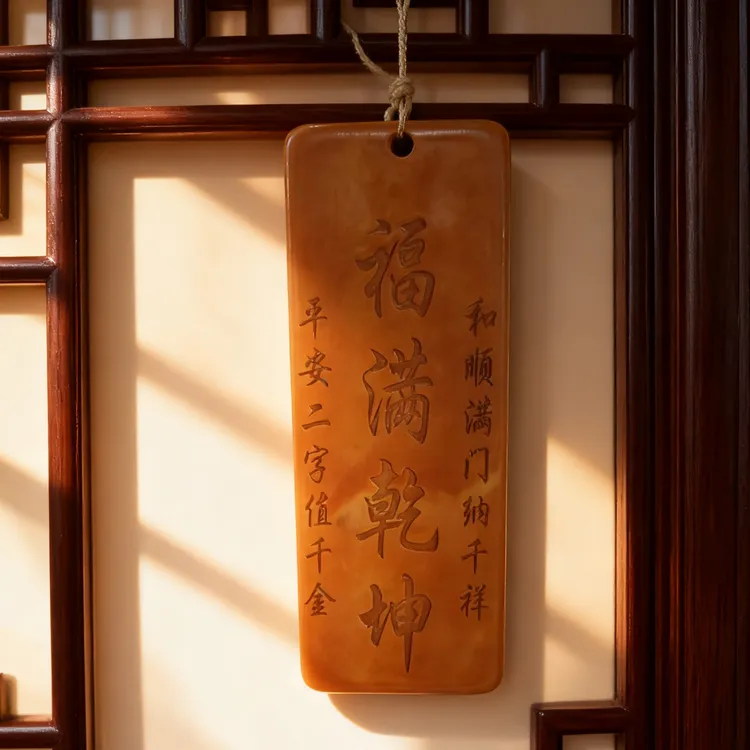 福满乾坤
和顺满门纳千祥
平安二字值千金